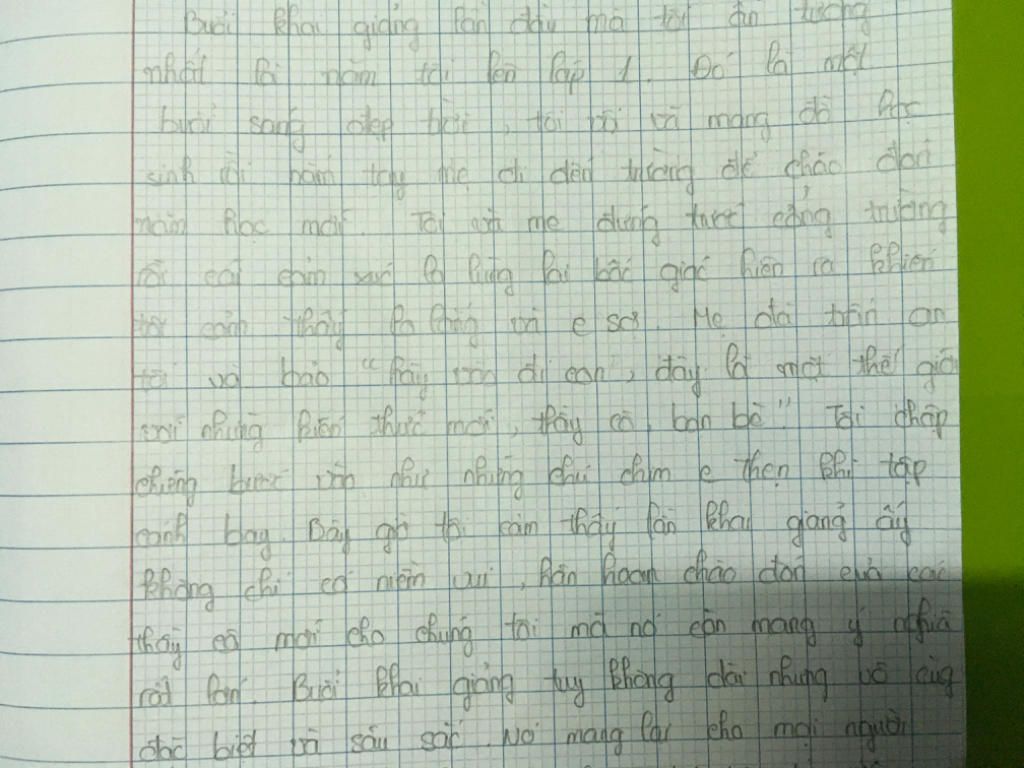 Buổi khai giảng lần đầu mà tôi ấn tượng
nhất là năm tôi lên lớp 1. Đó là một
buổi sáng đẹp trời, tôi vội vã mang đồ học
sinh rồi nắm tay mẹ đi đến trường để chào đón
năm học mới. Tôi với mẹ đứng trước cổng trường
rồi cái cảm xúc lo lắng lại bất giác hiện ra khiến
tôi cảm thấy lo lắng và e sợ. Mẹ đã trấn an
tôi và bảo "hãy vào đi con, đây là một thế giới
với những kiến thức mới, thầy cô, bạn bè" Tôi chập
chững bước vào như những chú chim e thẹn khi tập
cánh bay. Bây giờ tôi cảm thấy lần khai giảng ấy
không chỉ có niềm vui, hân hoan chào đón của các
thầy cô mới cho chúng tôi mà nó còn mang ý nghĩa
rất lớn. Buổi khai giảng tuy không dài nhưng vô cùng
đặc biệt và sâu sắc. Nó mang lại cho mọi người